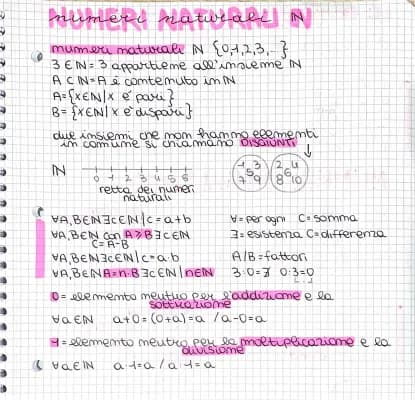 numeri naturali ℕ
numeri naturali ℕ {0,1,2,3,...}
3 ∈ ℕ = 3 appartiene all'insieme ℕ
A ⊂ ℕ = A è contenuto in ℕ
A = {x∈ℕ/x è pari}
B = {x∈ℕ/x è dispari}
due insiemi che non hanno elementi
in comune si chiamano DISGIUNTI
ℕ
0 1 2 3 4 5 6
retta dei numeri
naturali
1 3
5
7 9
2 4
6
8 10
∀A,B∈ℕ ∃c∈ℕ/c=a+b
∀=per ogni C=somma
∀A,B∈ℕ con A≥B ∃c∈ℕ
C=A-B
∃=esistenza C=differenza
∀A,B∈ℕ ∃c∈ℕ/c=a·b
A/B=fattori
∀A,B∈ℕ A=n·B ∃c∈ℕ/n∈ℕ
3:0=∄ 0:3=0
0=elemento neutro per l'addizione e la
sottrazione
∀a∈ℕ a+0=(0+a)=a /a-0=a
1=elemento neutro per la moltiplicazione e la
divisione
∀a∈ℕ a·1=a / a:1=a